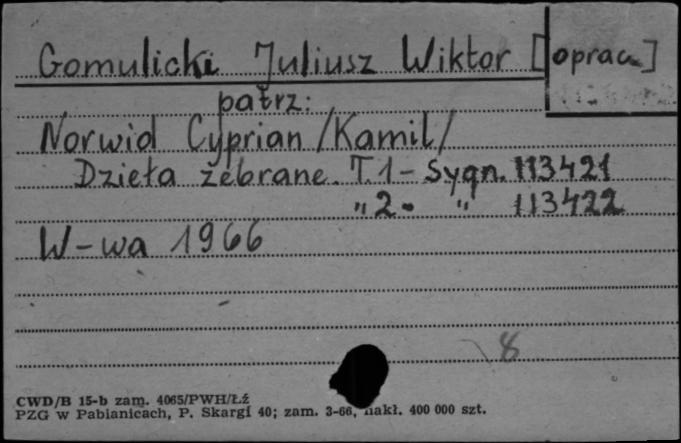 Gomulicki Juliusz Wiktor [oprac.]
patrz:
Norwid Cyprian /Kamil/
Dzieła zebrane. T.1 - Sygn. 113421
" 2. " 113422
W-wa 1966
8
CWD/B 15-b zam. 4065/PWH/Łź
PZG w Pabianicach, P. Skargi 40; zam. 3-66, nakł. 400 000 szt.